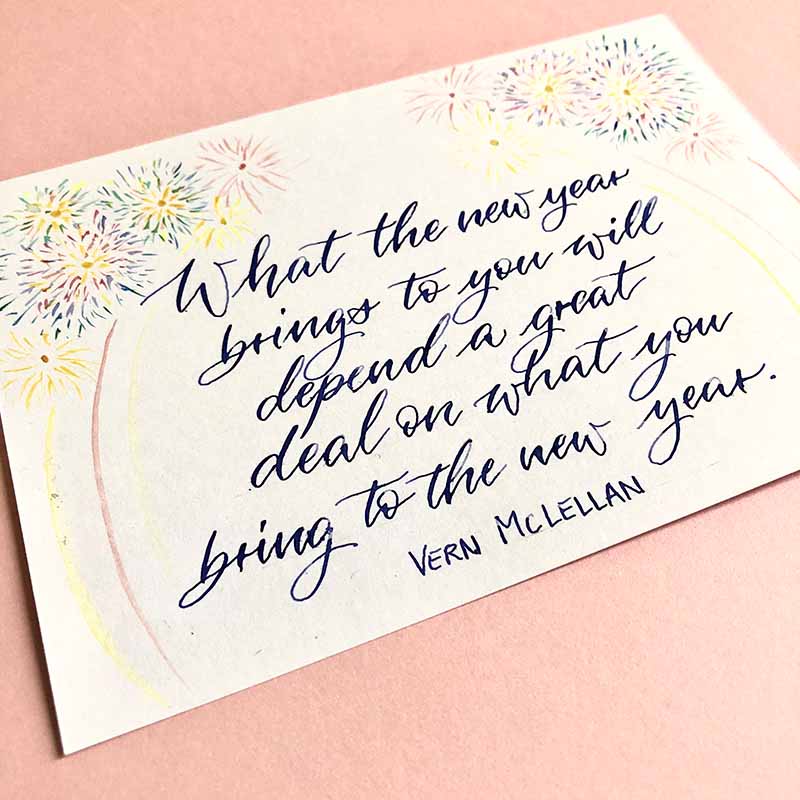 What the new year
brings to you will
depend a great
deal on what you
bring to the new year.
VERN MCLELLAN